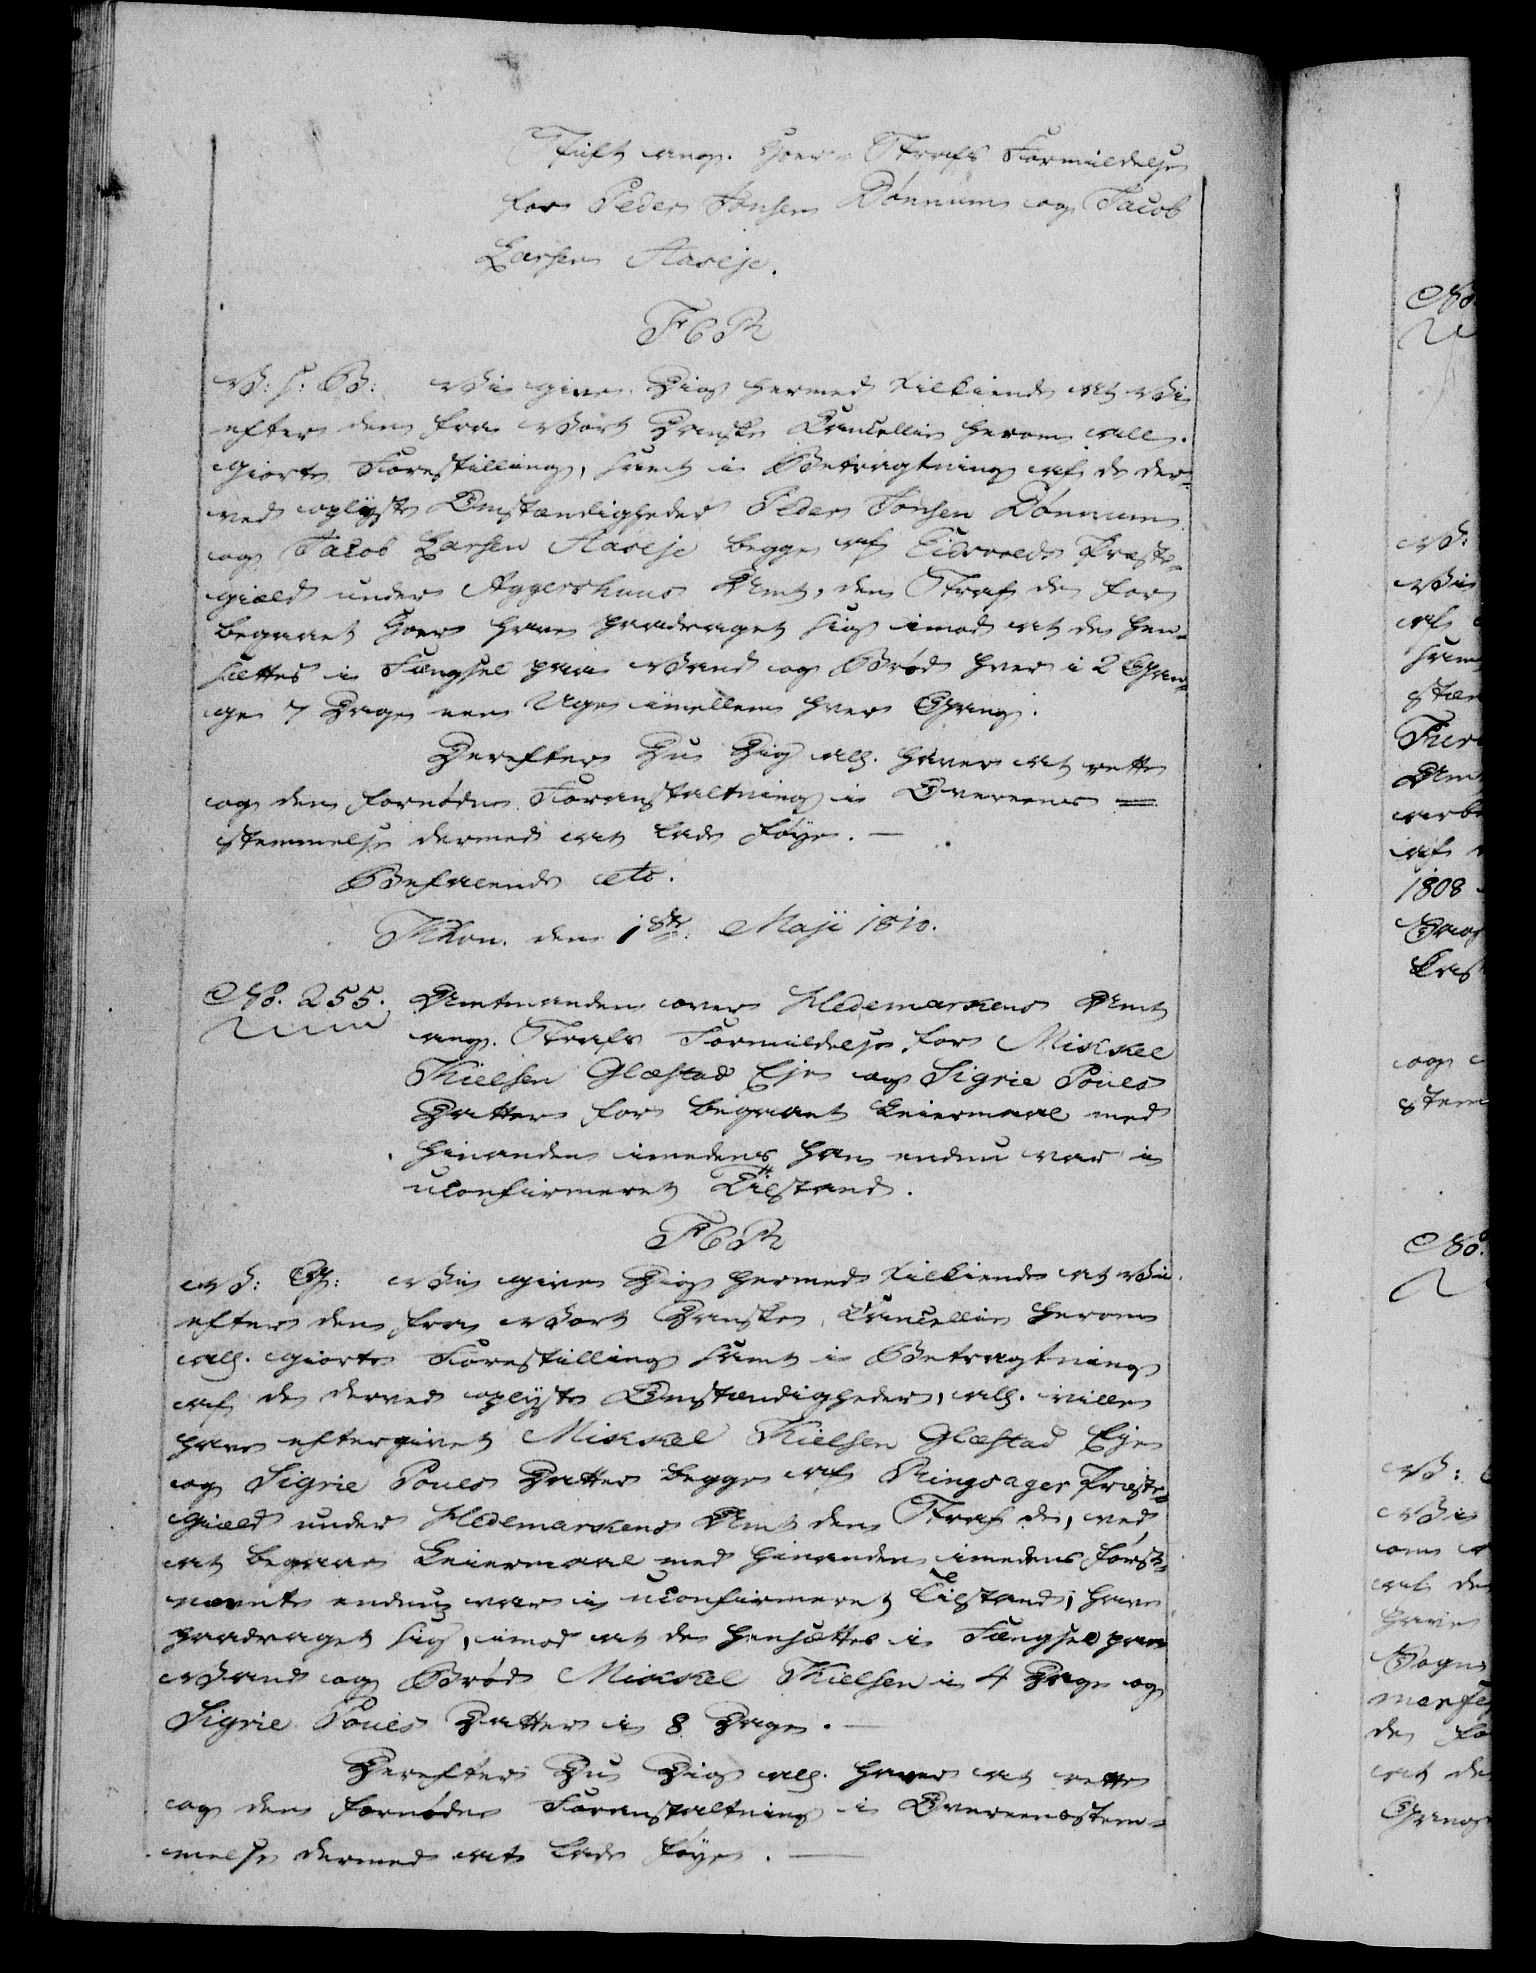 Stift ang. Hoers Strafs Formildelse
for Peder Jonsen Dønnum og Jacob
Larsen Aaseje.
F6R
V: S: B: Vi give Dig hermed tilkiende at Vi
efter den fra Vort Danske Cancellie herom all.
giorte Forestilling, samt i Betragtning af de der-
ved oplyste Omstændigheder Peder Jonsen Dønnum
og Jacob Larsen Aaseje begge af Eidsvolds Præste-
gield under Aggershuus Amt, den Straf de for
begaaet Hoer have paadraget sig imod at de hen-
sættes i Fængsel paa Vand og Brød hver i 2 Gan-
ge 7 Dage een Uge imellem hver Gang.
Derefter Du Dig all. haver at rette
og den fornødne Foranstaltning i Overeens=
stemmelse dermed at lade føye. —
Befalende etc.
Khvn. den 1ste Maji 1810.
No. 255. Amtmanden over Hedemarkens Amt
ang. Strafs Formildelse for Mikkel
Kielsen Glæstad Eje og Sigrie Pouls
Datter for begaaet Leiermaal med
hinanden imedens han endnu var i
uconfirmeret Tilstand.
F6R
V: G: Vi give Dig hermed tilkiende at Vi
efter den fra Vort Danske Cancellie herom
all. giorte Forestilling samt i Betragtning
af de derved oplyste Omstændigheder, all. ville
have eftergivet Mikkel Kielsen Glæstad Eje
og Sigrie Pouls Datter begge af Ringsager Præste-
gield under Hedemarkens Amt den Straf de, ved
at begaae Leiermaal med hinanden imedens først-
nævnte endnu var i uconfirmeret Tilstand, have
paadraget sig, imod at de hensættes i Fængsel paa
Vand og Brød Mikkel Kielsen i 4 Dage og
Sigrie Pouls Datter i 8 Dage. —
Derefter Du Dig all. haver at rette
og den fornødne Foranstaltning i Overeensstem-
melse dermed at lade føye. —